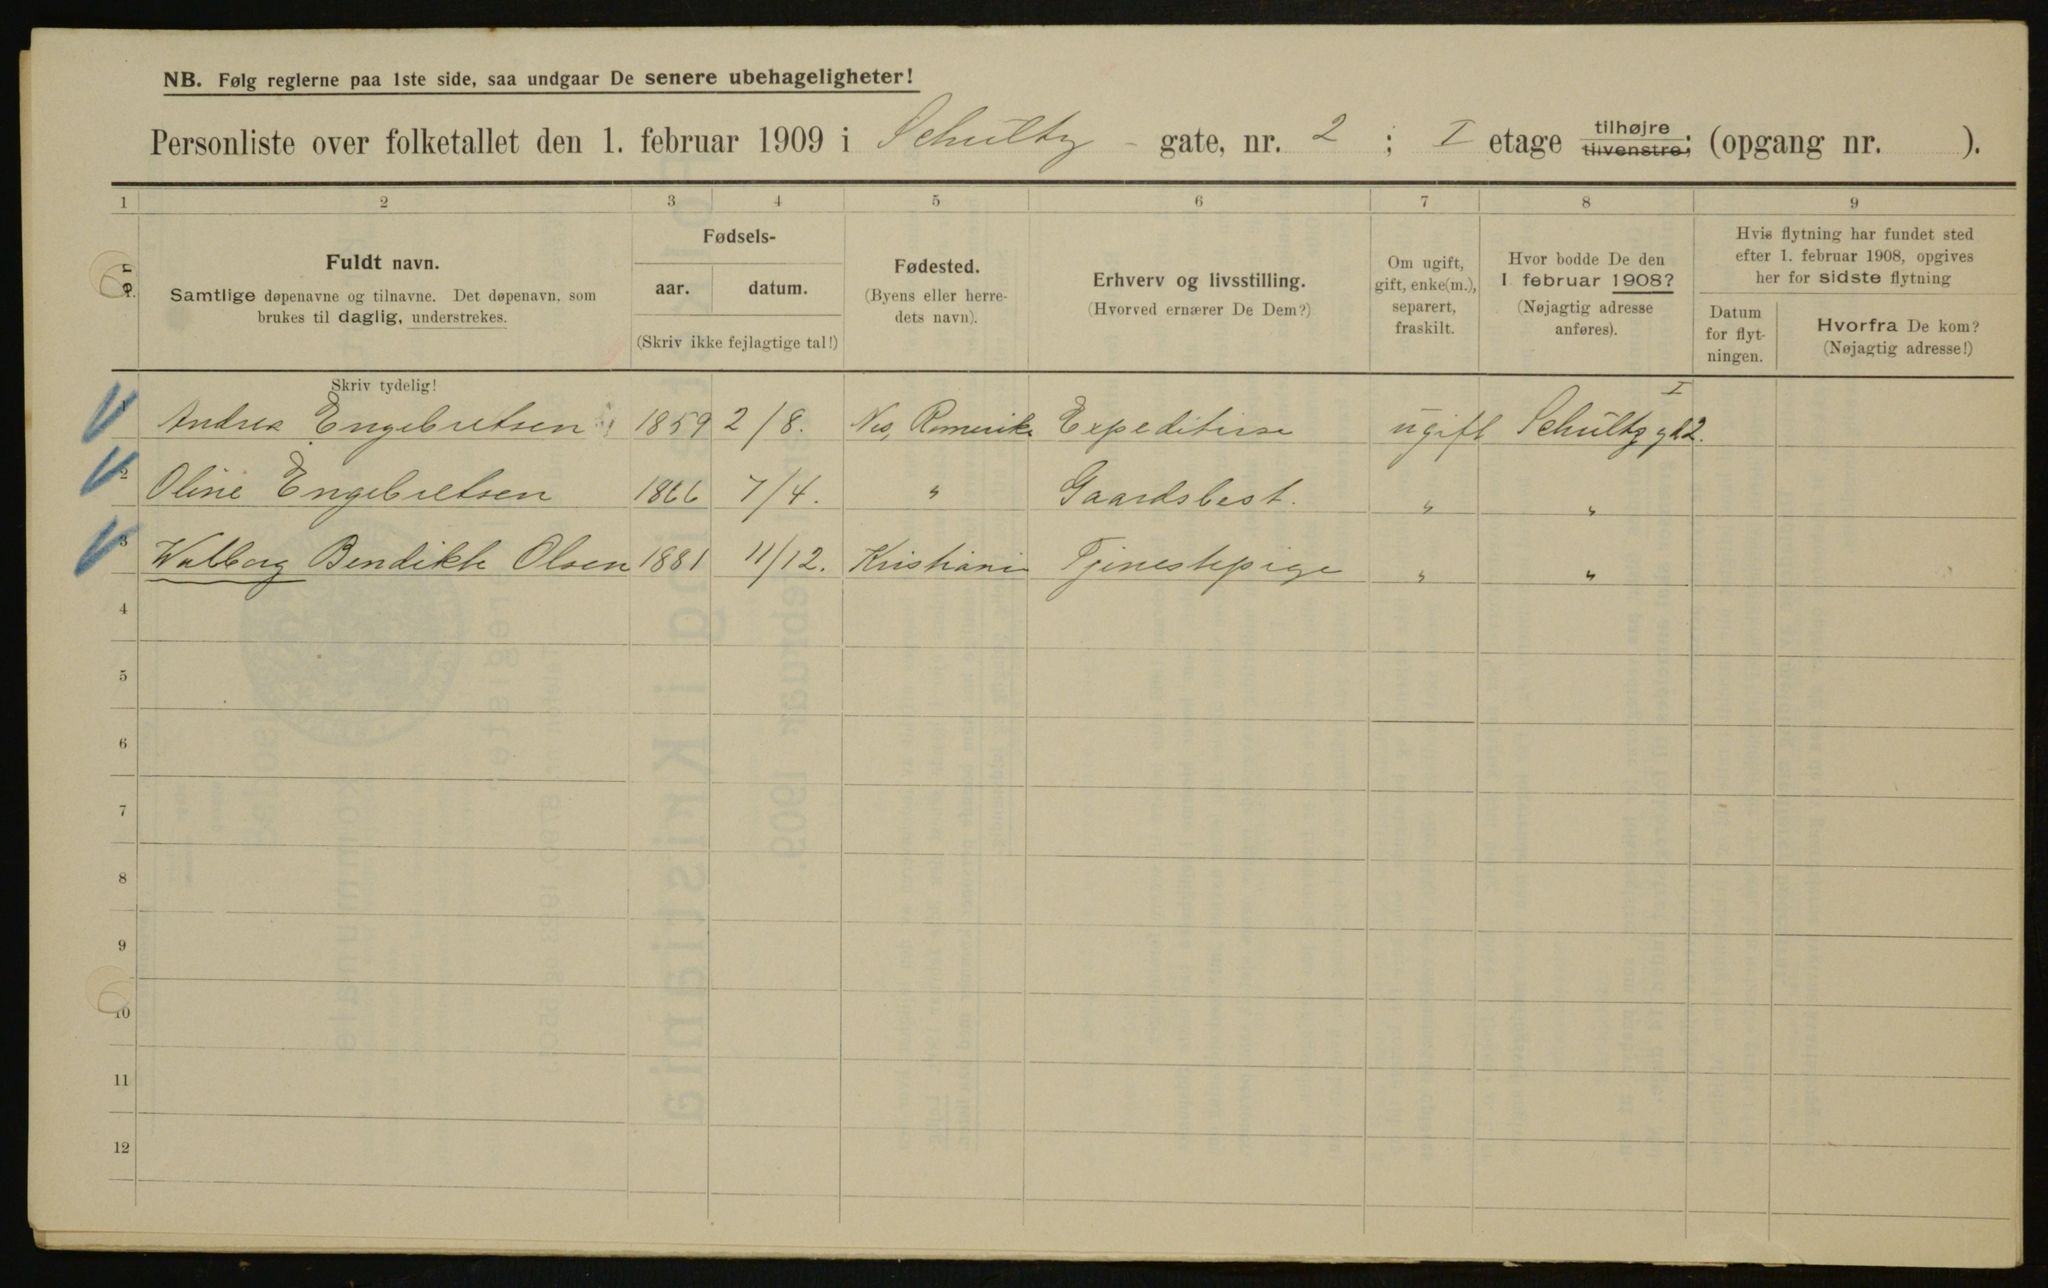 NB. Følg reglerne paa 1ste side, saa undgaar De senere ubehageligheter!
Personliste over folketallet den 1. februar 1909 i Schultz - gate, nr. 2 ; I etage tilhøjre tilvenstre; (opgang nr. ).
1 2 3 4 5 6 7 8 9
Fuldt navn.
Samtlige døpenavne og tilnavne. Det døpenavn, som
brukes til daglig, understrekes.
Fødsels-
aar. datum.
(Skriv ikke fejlagtige tal!)
Fødested.
(Byens eller herre-
dets navn).
Erhverv og livsstilling.
(Hvorved ernærer De Dem?)
Om ugift,
gift, enke(m.),
separert,
fraskilt.
Hvor bodde De den
1 februar 1908?
(Nøjagtig adresse
anføres).
Hvis flytning har fundet sted
efter 1. februar 1908, opgives
her for sidste flytning
Datum
for flyt-
ningen.
Hvorfra De kom?
(Nøjagtig adresse!)
Skriv tydelig!
1 Andrea Engebretsen 1859 2/8. Nes, Romerike Expeditrise ugift Schultz gd 2. I
2 Oline Engebretsen 1866 7/4. " Gaardsbest. " "
3 Walborg Bendikte Olsen 1881 11/12. Kristiania Tjenestepige " "
4
5
6
7
8
9
10
11
12